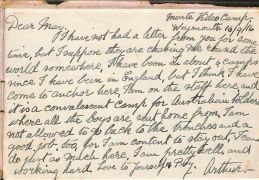 Monte Video Camp,
Weymouth 16/9/16
Dear May,
I have not had a letter from you for some
time, but I suppose they are chasing me round the
world somewhere. I have been in about 6 camps
since I have been in England, but I think I have
come to anchor here, I'm on the staff here, and
it is a convalescent Camp for Australian Soldiers
where all the boys are sent home from, I am
not allowed to go back to the trenches and a
good job too, for I am content to stay out. I can
do just as much here, I am pretty well, and
working hard. Love to yourself &
Arthur.